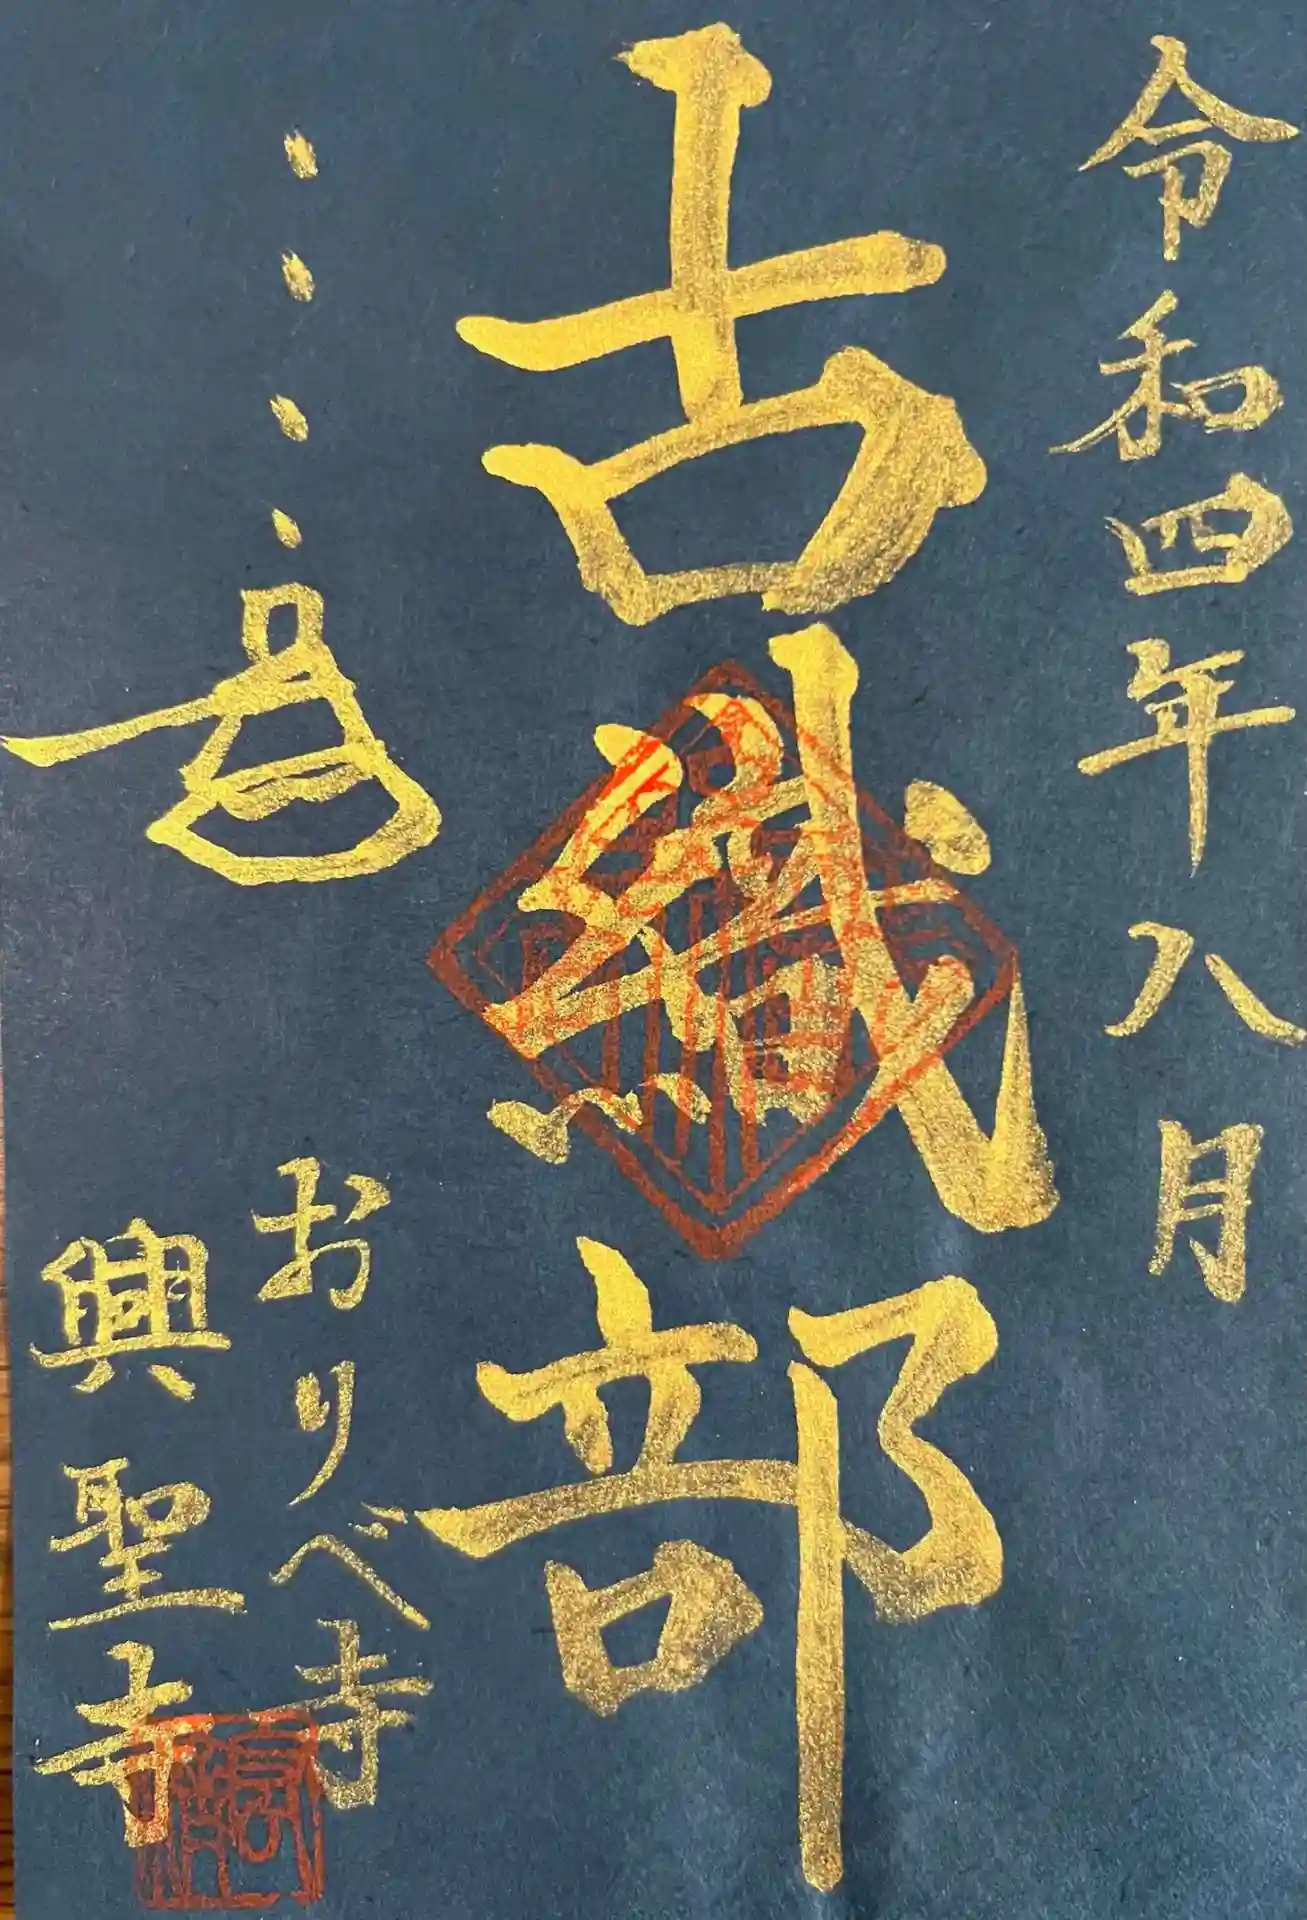 令和四年八月
古織部
おりべ寺
興聖寺